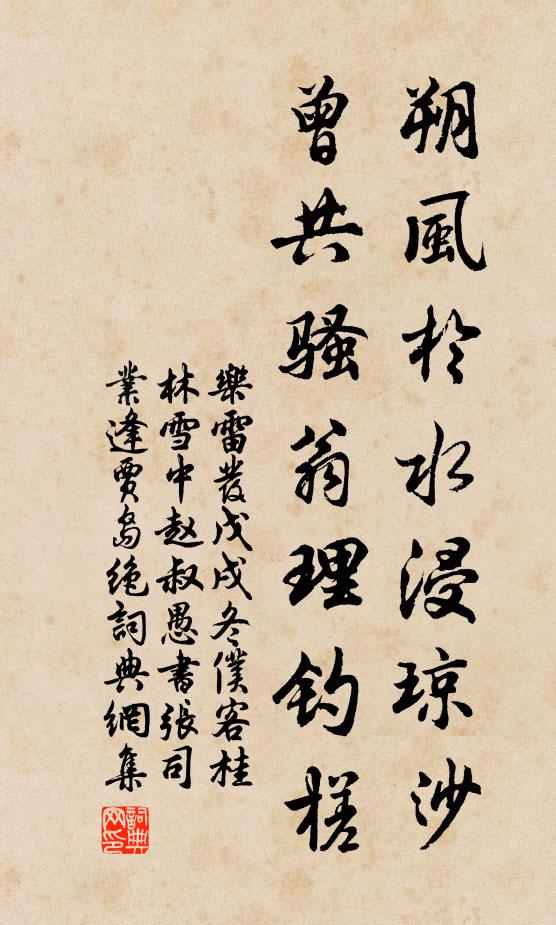 朔風於水浸琼沙
曾共騷翁理釣槎
樂雷發戊戌冬僕客桂
林雪中赵叔愚書張司
業逢賈島絶詞典網集
詞典网印